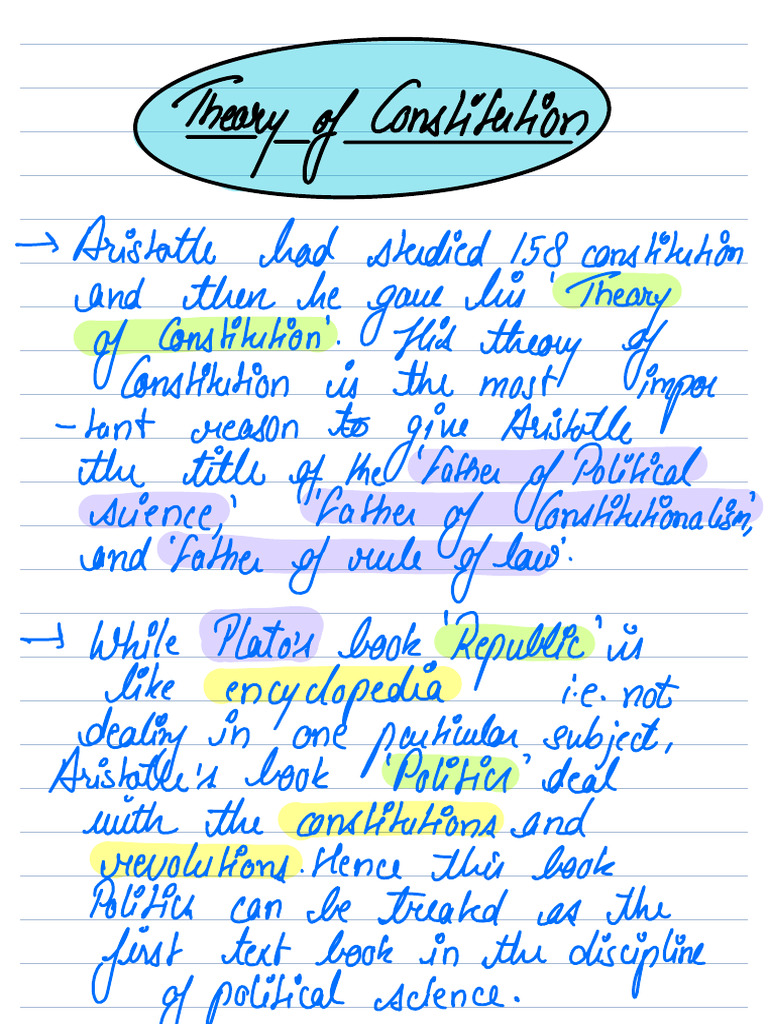 Theory of Constitution
→ Aristotle had studied 158 constitution
and then he gave his 'Theory
of Constitution'. His theory of
Constitution is the most impor
-tant reason to give Aristotle
the title of the 'Father of Political
science,' 'Father of Constitutionalism',
and 'Father of rule of law'.
→ While Plato's book 'Republic' is
like encyclopedia i.e. not
dealing in one particular subject,
Aristotle's book 'Politics' deal
with the constitutions and
revolutions. Hence this book
Politics can be treated as the
first text book in the discipline
of political science.